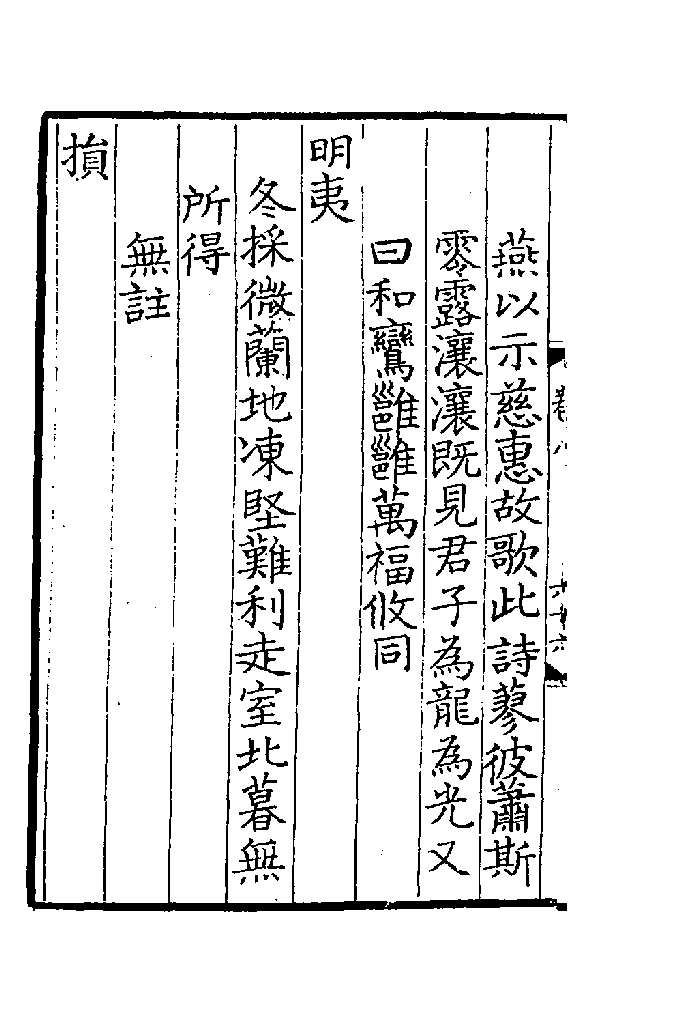 燕以示慈惠故歌此詩蓼彼蕭斯
零露瀼瀼既見君子為龍為光又
曰和鸞雝雝萬福攸同
明夷
冬採微蘭地凍堅難利走室北暮無
所得
無註
損